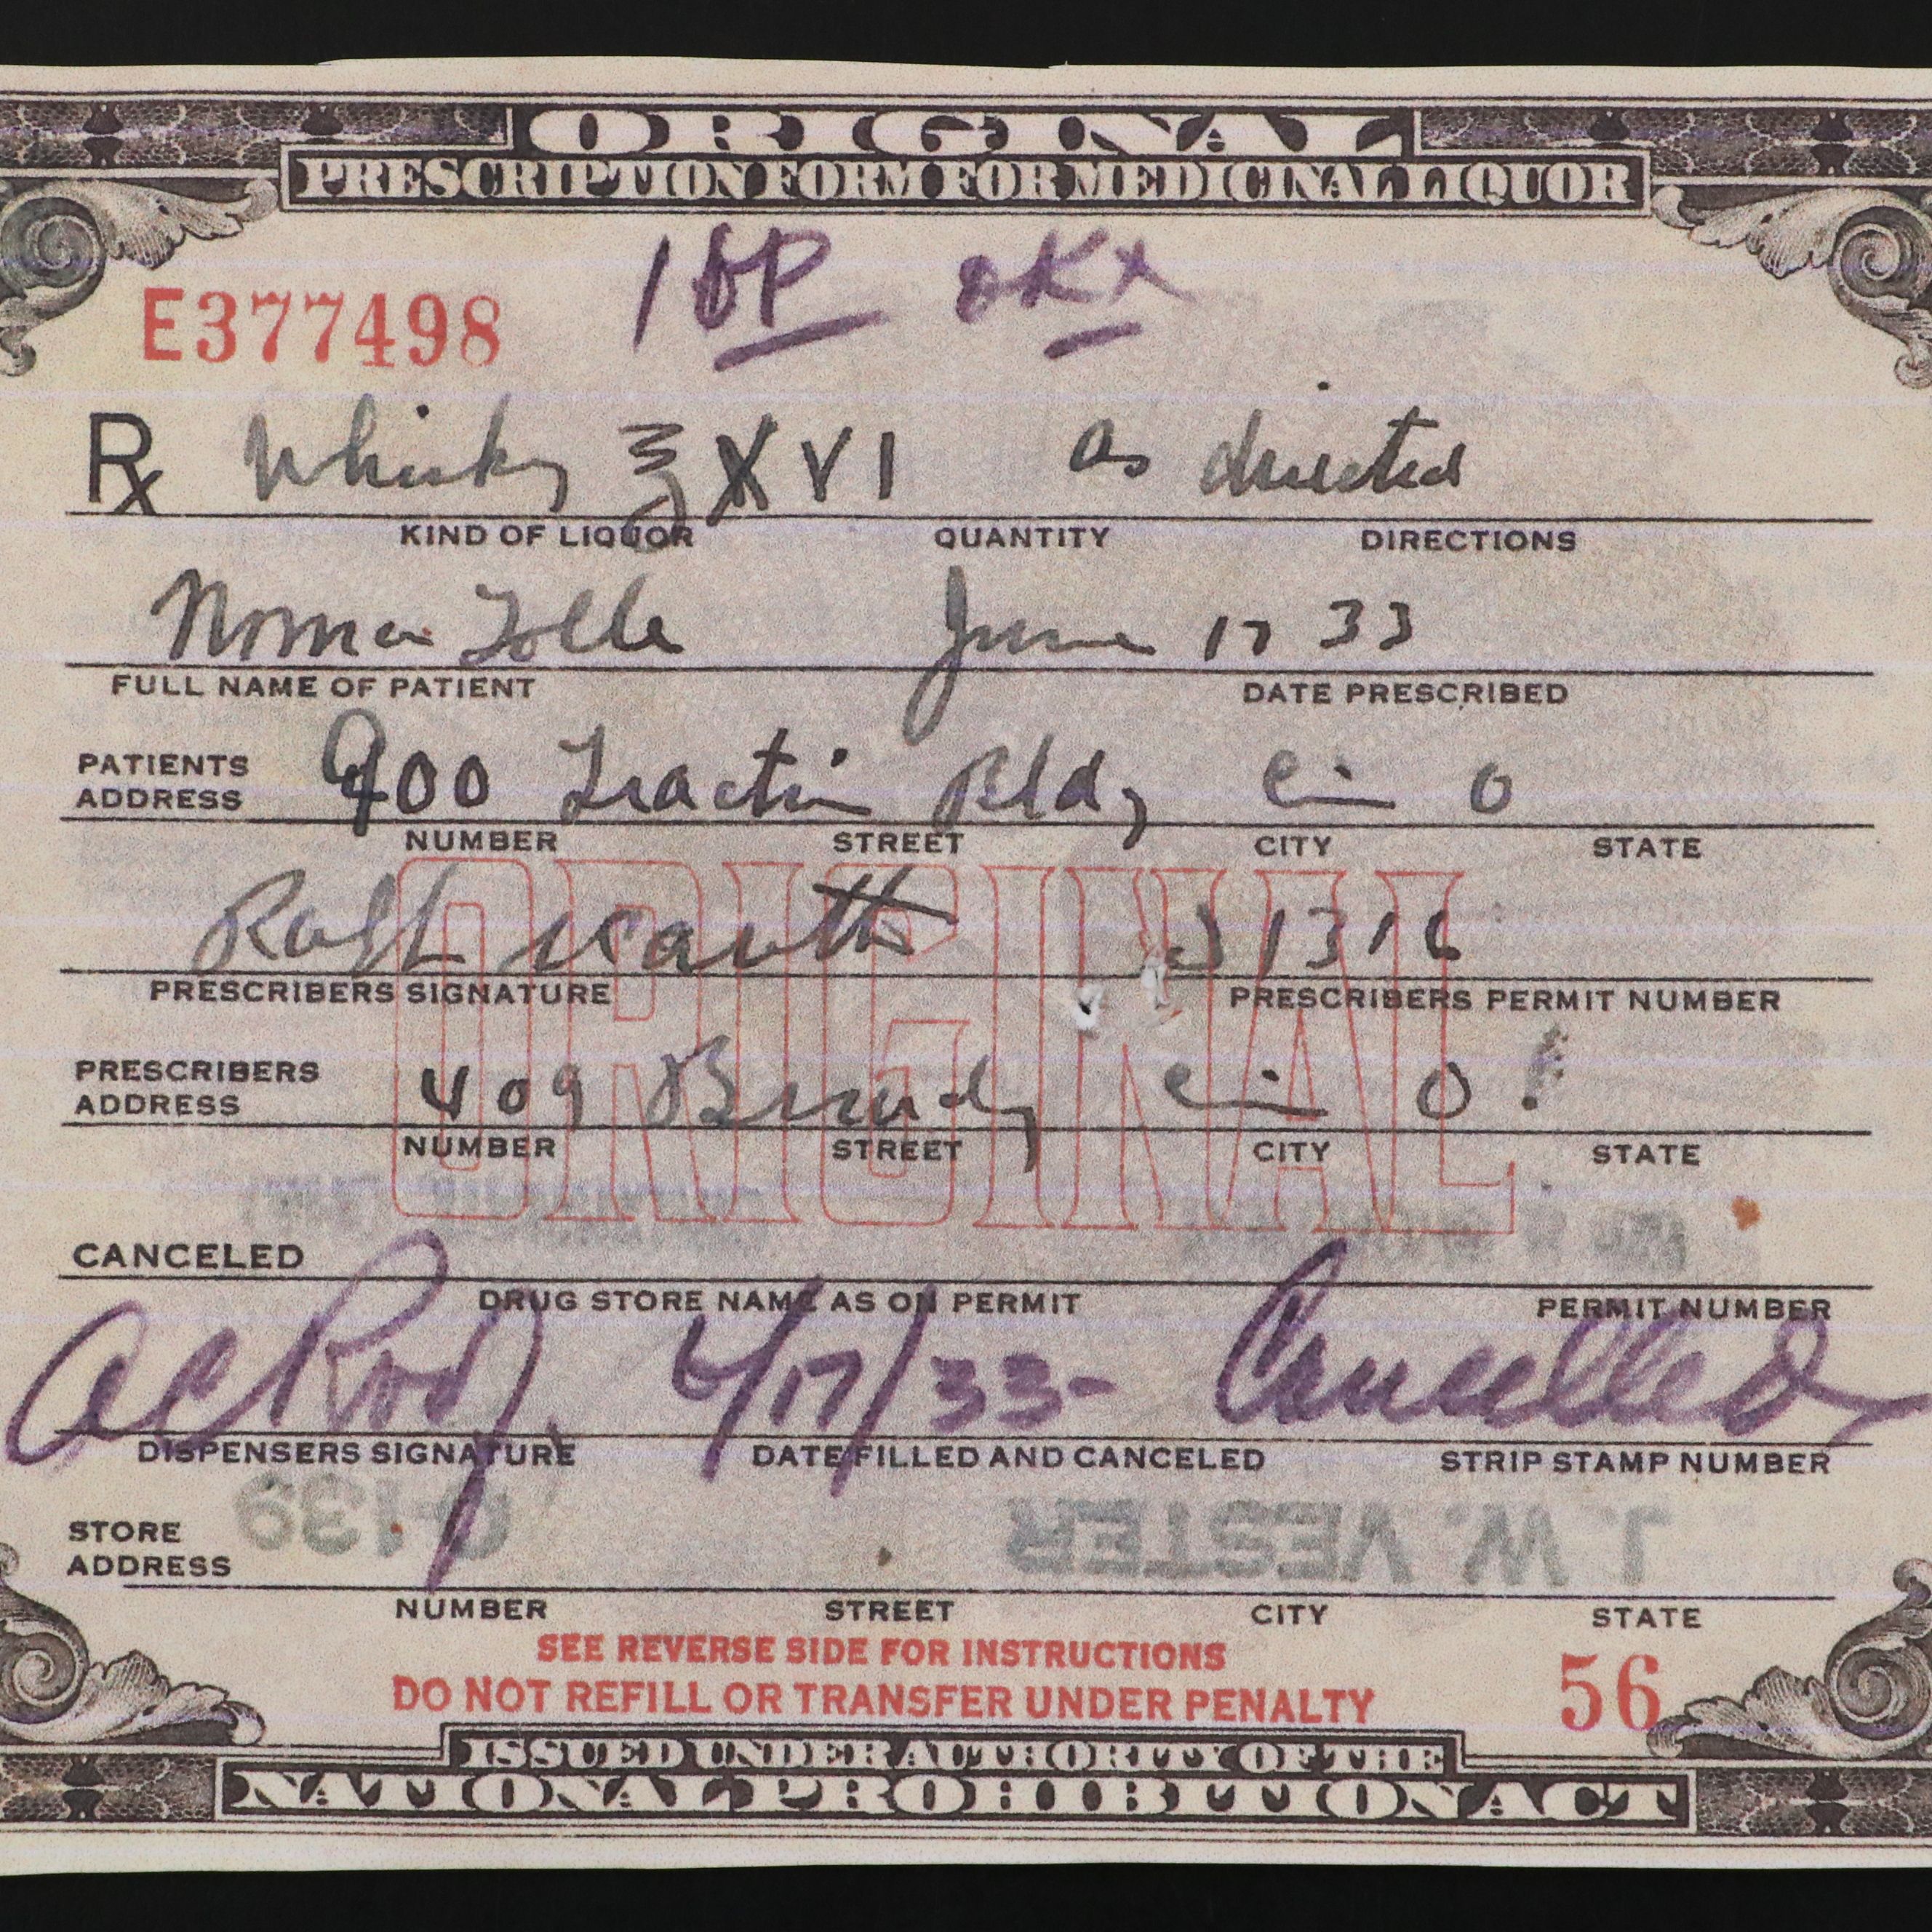 ORIGINAL
PRESCRIPTION FORM FOR MEDICINAL LIQUOR
OK
E377498
Rx Whisky ℥ XVI as directed
KIND OF LIQUOR QUANTITY DIRECTIONS
Norma Tolle June 17 33
FULL NAME OF PATIENT DATE PRESCRIBED
PATIENTS ADDRESS 900 Traction Bldg Cin O
NUMBER STREET CITY STATE
ORIGINAL
1316
PRESCRIBERS SIGNATURE PRESCRIBERS PERMIT NUMBER
PRESCRIBERS ADDRESS 409 Cin O
NUMBER STREET CITY STATE
CANCELED
DRUG STORE NAME AS ON PERMIT PERMIT NUMBER
6/17/33 - Cancelled
DISPENSERS SIGNATURE DATE FILLED AND CANCELED STRIP STAMP NUMBER
139 J. W. VESTER
STORE ADDRESS
NUMBER STREET CITY STATE
SEE REVERSE SIDE FOR INSTRUCTIONS
DO NOT REFILL OR TRANSFER UNDER PENALTY
56
ISSUED UNDER AUTHORITY OF THE
NATIONAL PROHIBITION ACT